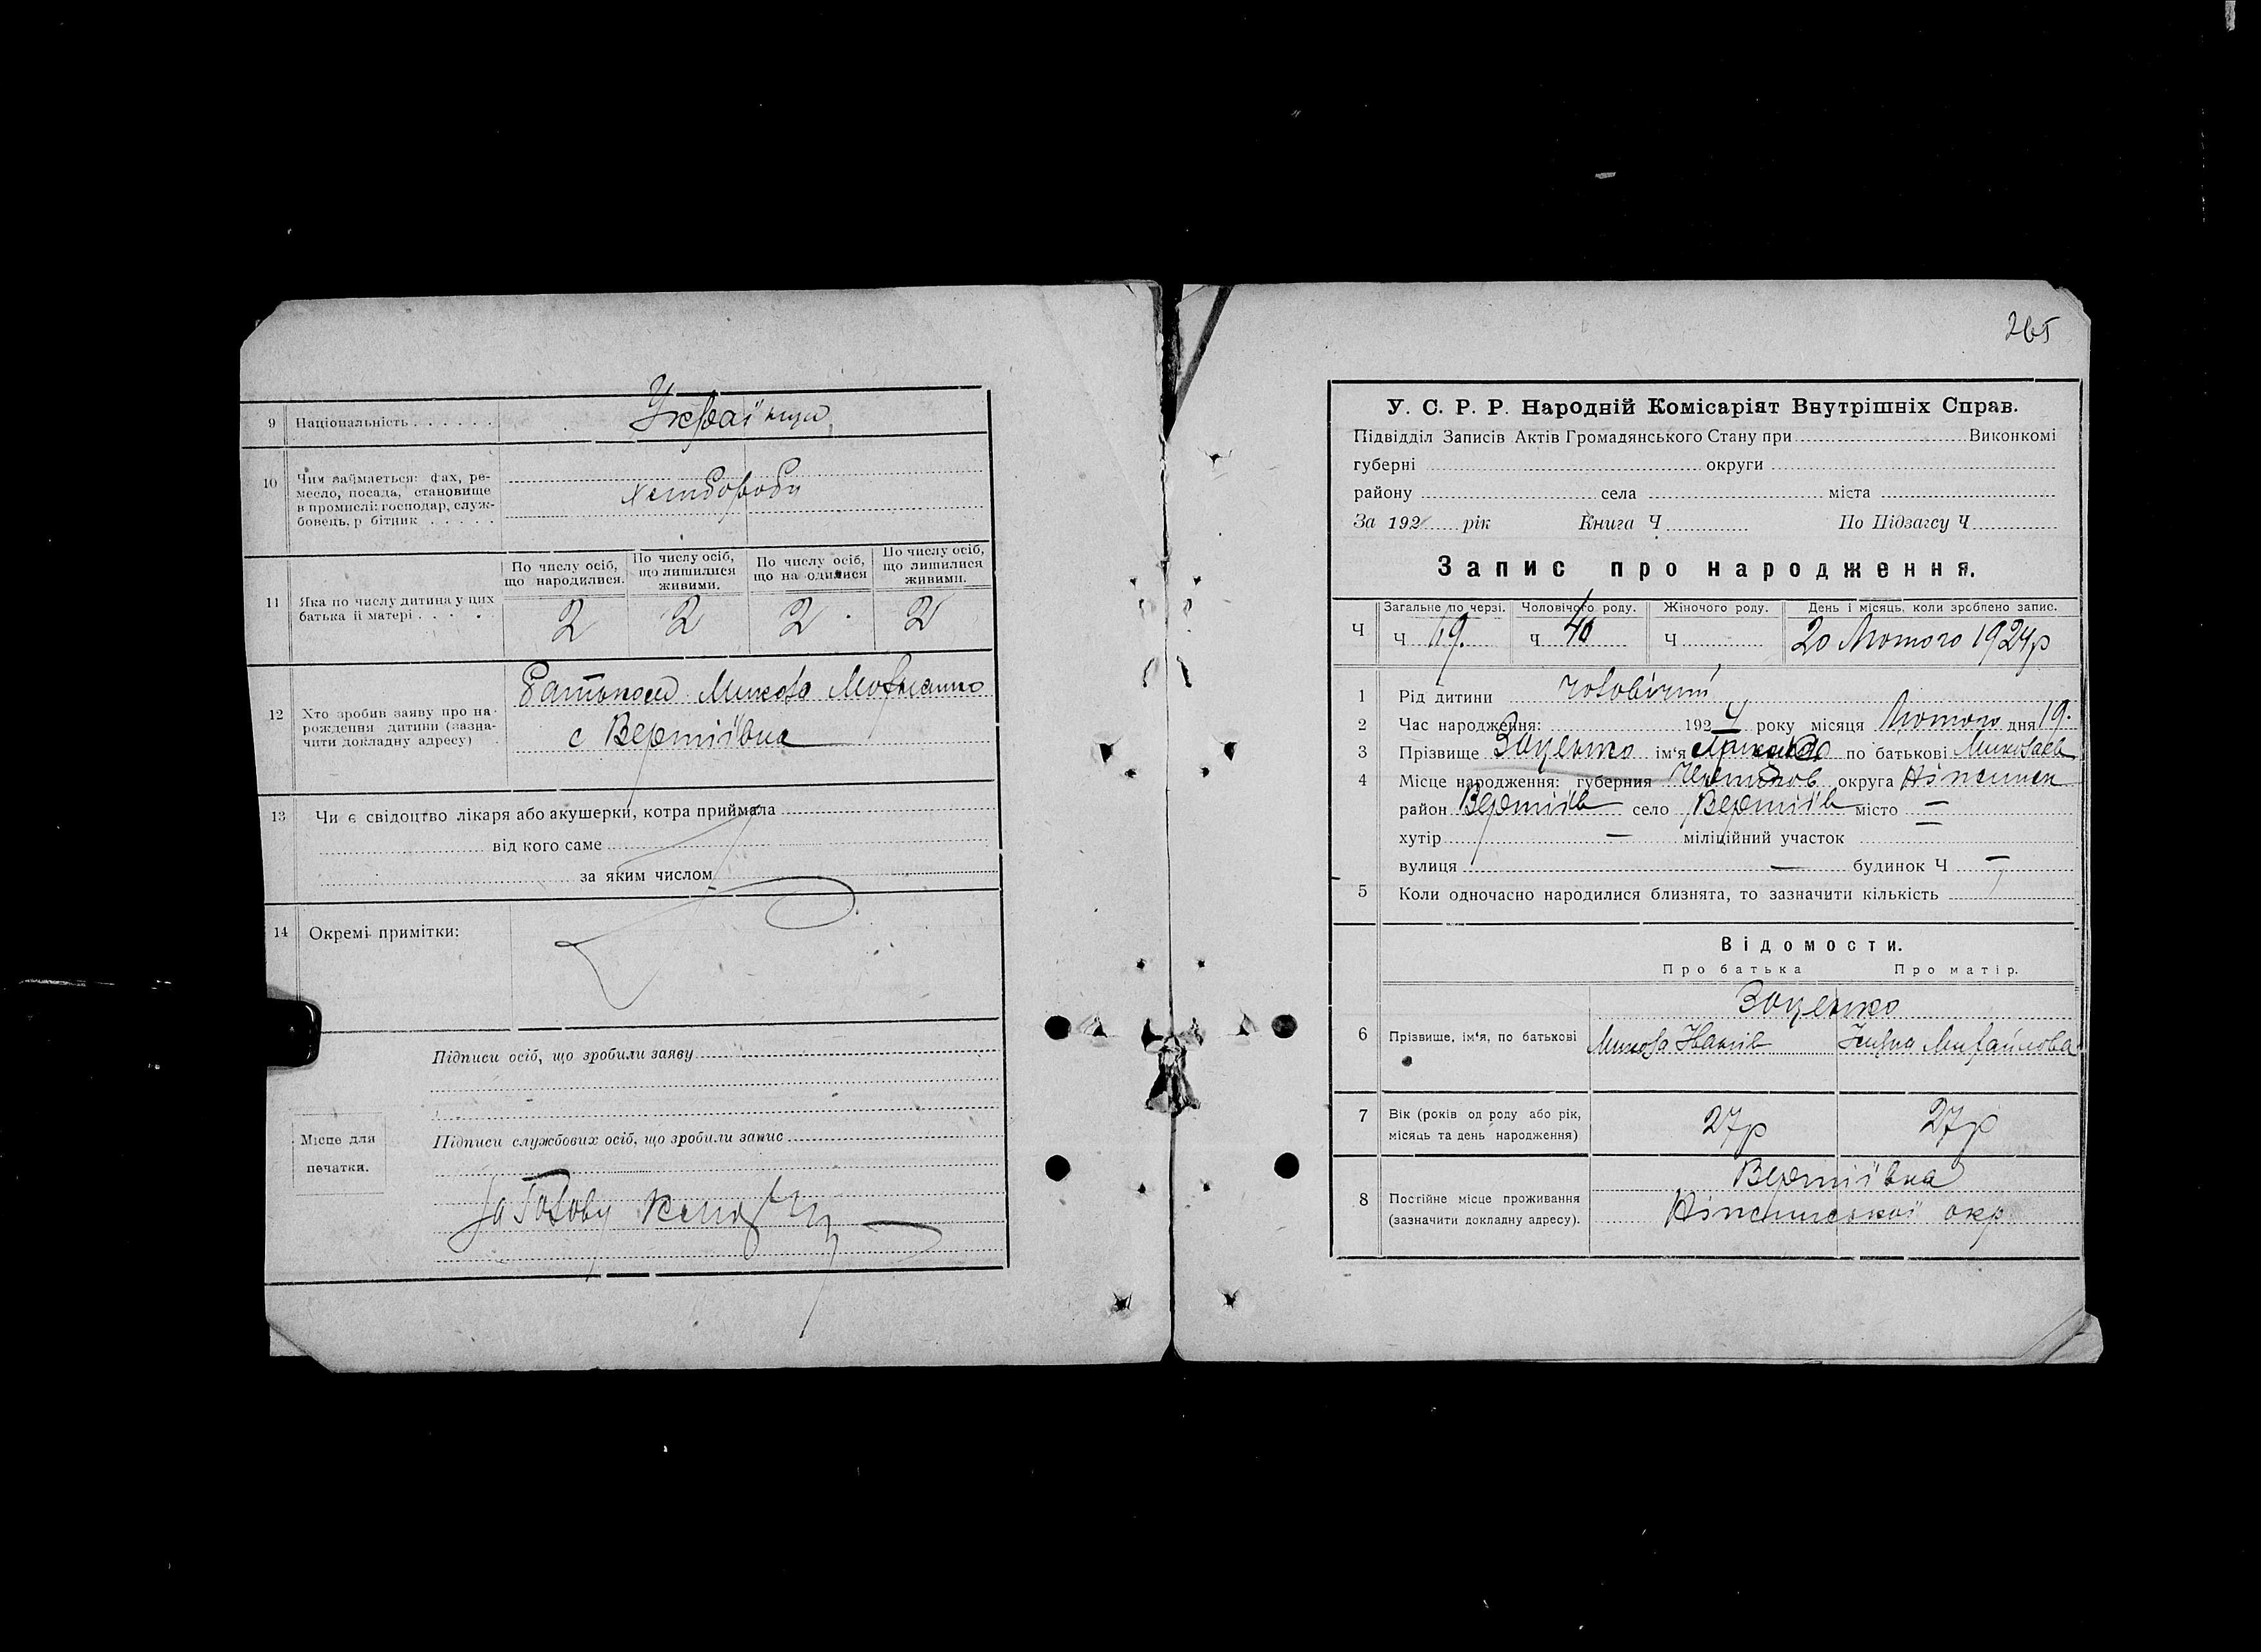 9 Національність . . . . . . Українци
10 Чим займається: фах, ре-
месло, посада, становище
в промислі: господар, служ-
бовець, р бітник . . . . . хліборobи
11 Яка по числу дитина у цих
батька й матері . . . .
По числу осіб, що народилися. По числу осіб, що лишилися живими. По числу осіб, що на одилися По числу осіб, що лишилися живими.
2 2 2 2
12 Хто зробив заяву про на-
рождення дитини (зазна-
чити докладну адресу)
Батьком Микола
с Вертіївка
13 Чи є свідоцтво лікаря або акушерки, котра приймала
від кого саме
за яким числом
14 Окремі примітки:
Підписи осіб, що зробили заяву
Місце для
печатки.
Підписи службових осіб, що зробили запис
За Голову
265
У. С. Р. Р. Народній Комісаріят Внутрішніх Справ.
Підвідділ Записів Актів Громадянського Стану при Виконкомі
губерні округи
району села міста
За 192 рік Книга Ч По Підзагсу Ч
Запис про народження.
Загальне по черзі. Чоловічого роду. Жіночого роду. День і місяць, коли зроблено запис.
Ч Ч 69. Ч 40 Ч 20 Лютого 1924р
1 Рід дитини чоловічий
2 Час народження: 1924 року місяця Лютого дня 19.
3 Прізвище Зоценко ім'я по батькові Миколаєв
4 Місце народження: губерния Чернигов округа Ніженськ
район Вертіїв село Вертіїв місто —
хутір — міліційний участок —
вулиця — будинок Ч —
5 Коли одночасно народилися близнята, то зазначити кількість
Відомости.
Про батька Про матір.
Зоценко
6 Прізвище, ім'я, по батькові Микола Іванів Михайлова
7 Вік (років од роду або рік,
місяць та день народження) 27р 27р
Вертіївка
8 Постійне місце проживання
(зазначити докладну адресу). Ніженської окр